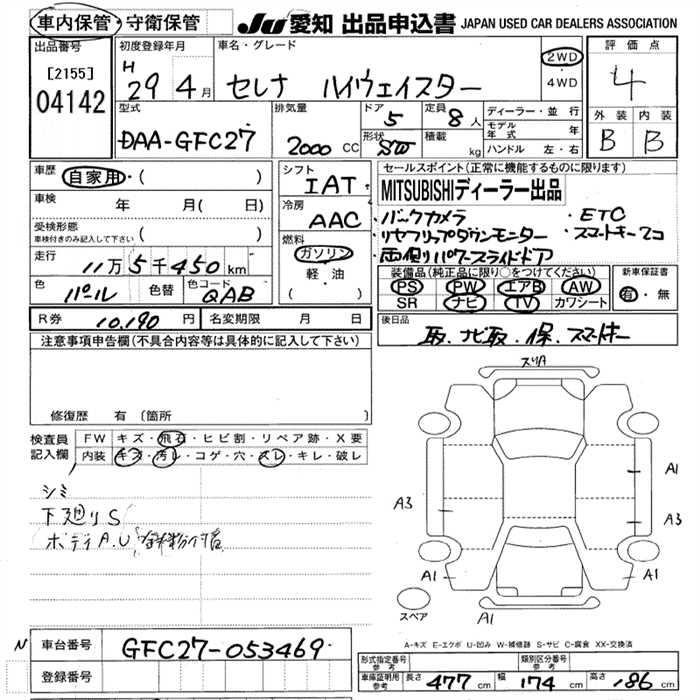 車内保管・守衛保管 JU 愛知 出品申込書 JAPAN USED CAR DEALERS ASSOCIATION
出品番号 初度登録年月 車名・グレード 2WD 評価点
[2155] H
29 4月 セレナ ハイウェイスター 4WD 4
04142
型式 排気量 ドア 5 定員 8人 ディーラー・並行 外装 内装
DAA-GFC27 2000 CC 形状 SW 積載 kg モデル年式 年 B B
ハンドル 左・右
車歴 自家用・( ) シフト セールスポイント(正常に機能するものに限ります)
IAT MITSUBISHIディーラー出品
車検 年 月( 日) 冷房 ・バックカメラ ・ETC
受検形態 AAC ・リヤフリップダウンモニター ・スマートキー2コ
車検付きのみ記入して下さい 燃料 ・両側パワースライドドア
走行 11万5千450km ガソリン 装備品(純正品に限り○をつけてください) 新車保証書
軽・油 PS PW エアB AW 有・無
色 パール 色替 色コード QAB ( ) SR ナビ TV カワシート
R券 10,190円 名変期限 月 日 後日品
取、ナビ取、保、スマートキー
注意事項申告欄(不具合内容等は具体的に記入して下さい)
スリA
修復歴 有 (箇所
検査員 FW キズ・飛石・ヒビ割・リペア跡・X要
記入欄 内装 キズ・汚レ・コゲ・穴・スレ・キレ・破レ
A1
シミ
A3 A3
下廻りS
ボディA.U 鉄粉付着
A1 A1
スペア A1
A-キズ E-エクボ U-凹み W-補修跡 S-サビ C-腐食 XX-交換済
N 車台番号 GFC27-053469
形式指定番号 参考 類別区分番号 参考
登録番号 車庫証明用 参考 長さ 477cm 幅 174cm 高さ 186cm